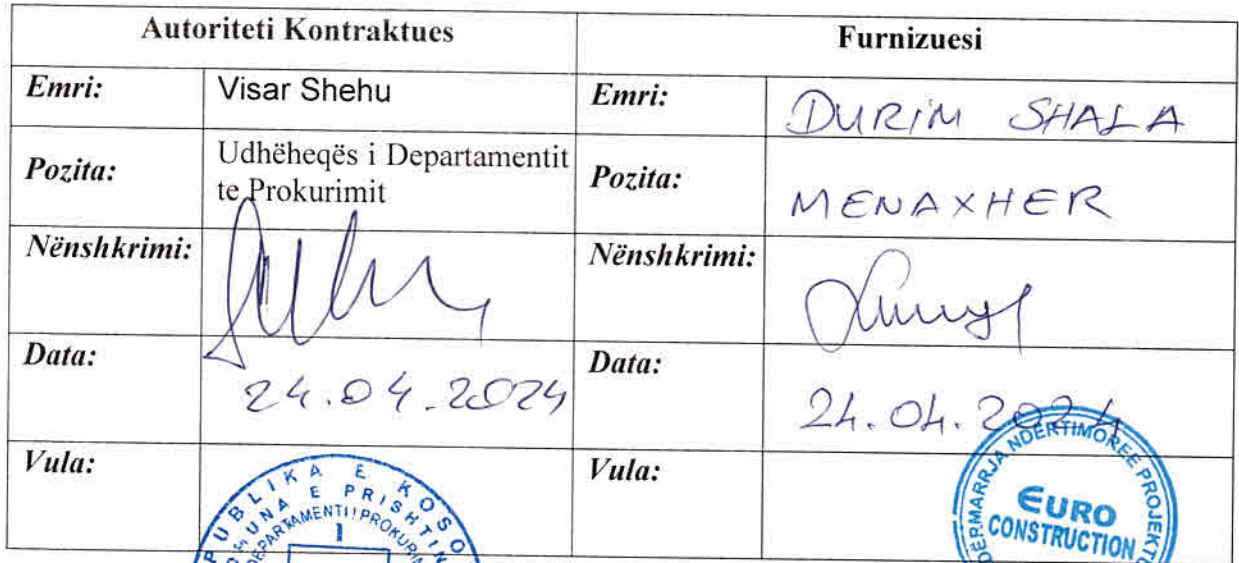 Autoriteti Kontraktues
Furnizuesi
Emri:
Visar Shehu
Emri:
DURIM SHALA
Pozita:
Udhëheqës i Departamentit
te Prokurimit
Pozita:
MENAXHER
Nënshkrimi:
Nënshkrimi:
Data:
24.04.2024
Data:
24.04.2024
Vula:
Vula:
PUBLIKA E KOSO
UNA E PRISHTIN
DEPARTAMENTI I PROKURIM
1
NDËRTIMOREE PROJEKTO
EURO
CONSTRUCTION